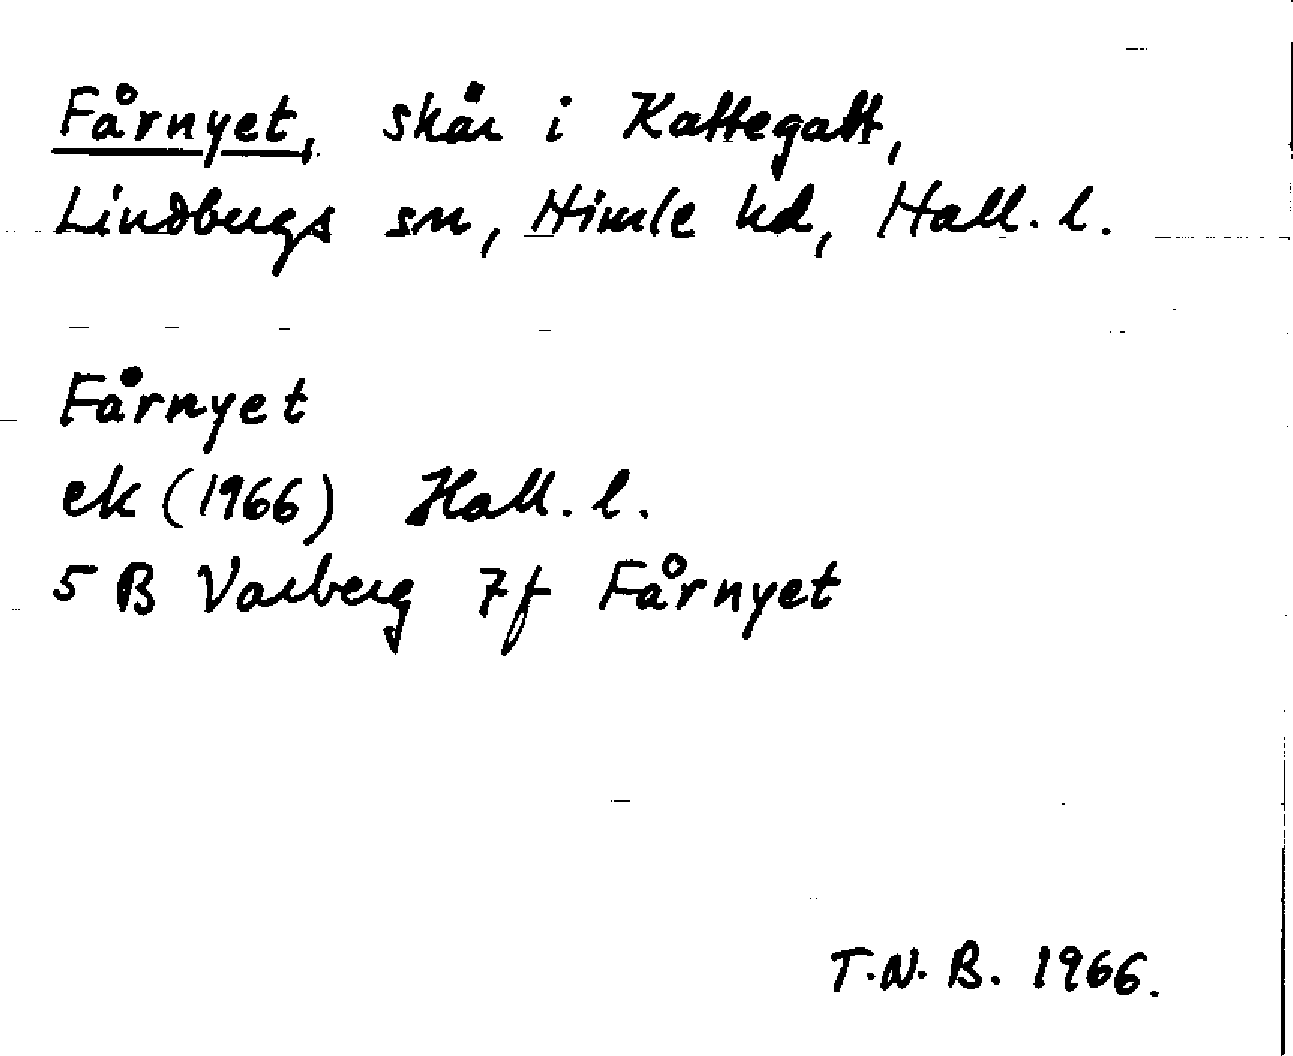 Fårnyet, skär i Kattegatt,
Lindbergs sn, Himle hd, Hall. l.
Fårnyet
ek (1966) Hall. l.
5 B Varberg 7f Fårnyet
T.N.B. 1966.